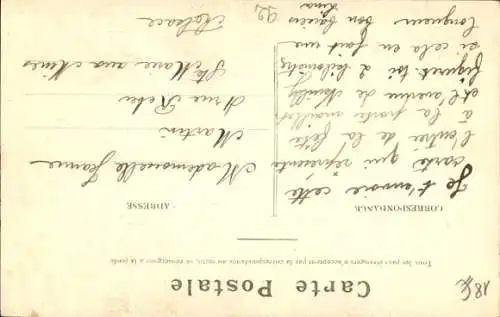 Carte Postale
Tous les pays étrangers n'acceptent pas la correspondance au recto, se renseigner à la poste
CORRESPONDANCE
ADRESSE
Je t'envoie cette
carte qui représente
l'entrée de la fête
à la porte maillot
et l'avenue de Neuilly
figures toi 2 kilomètres
si cela en fait une
longueur
bon baisers
Mademoiselle Jeanne
Martin
rue
Ste Marie aux Mines
Alsace
92